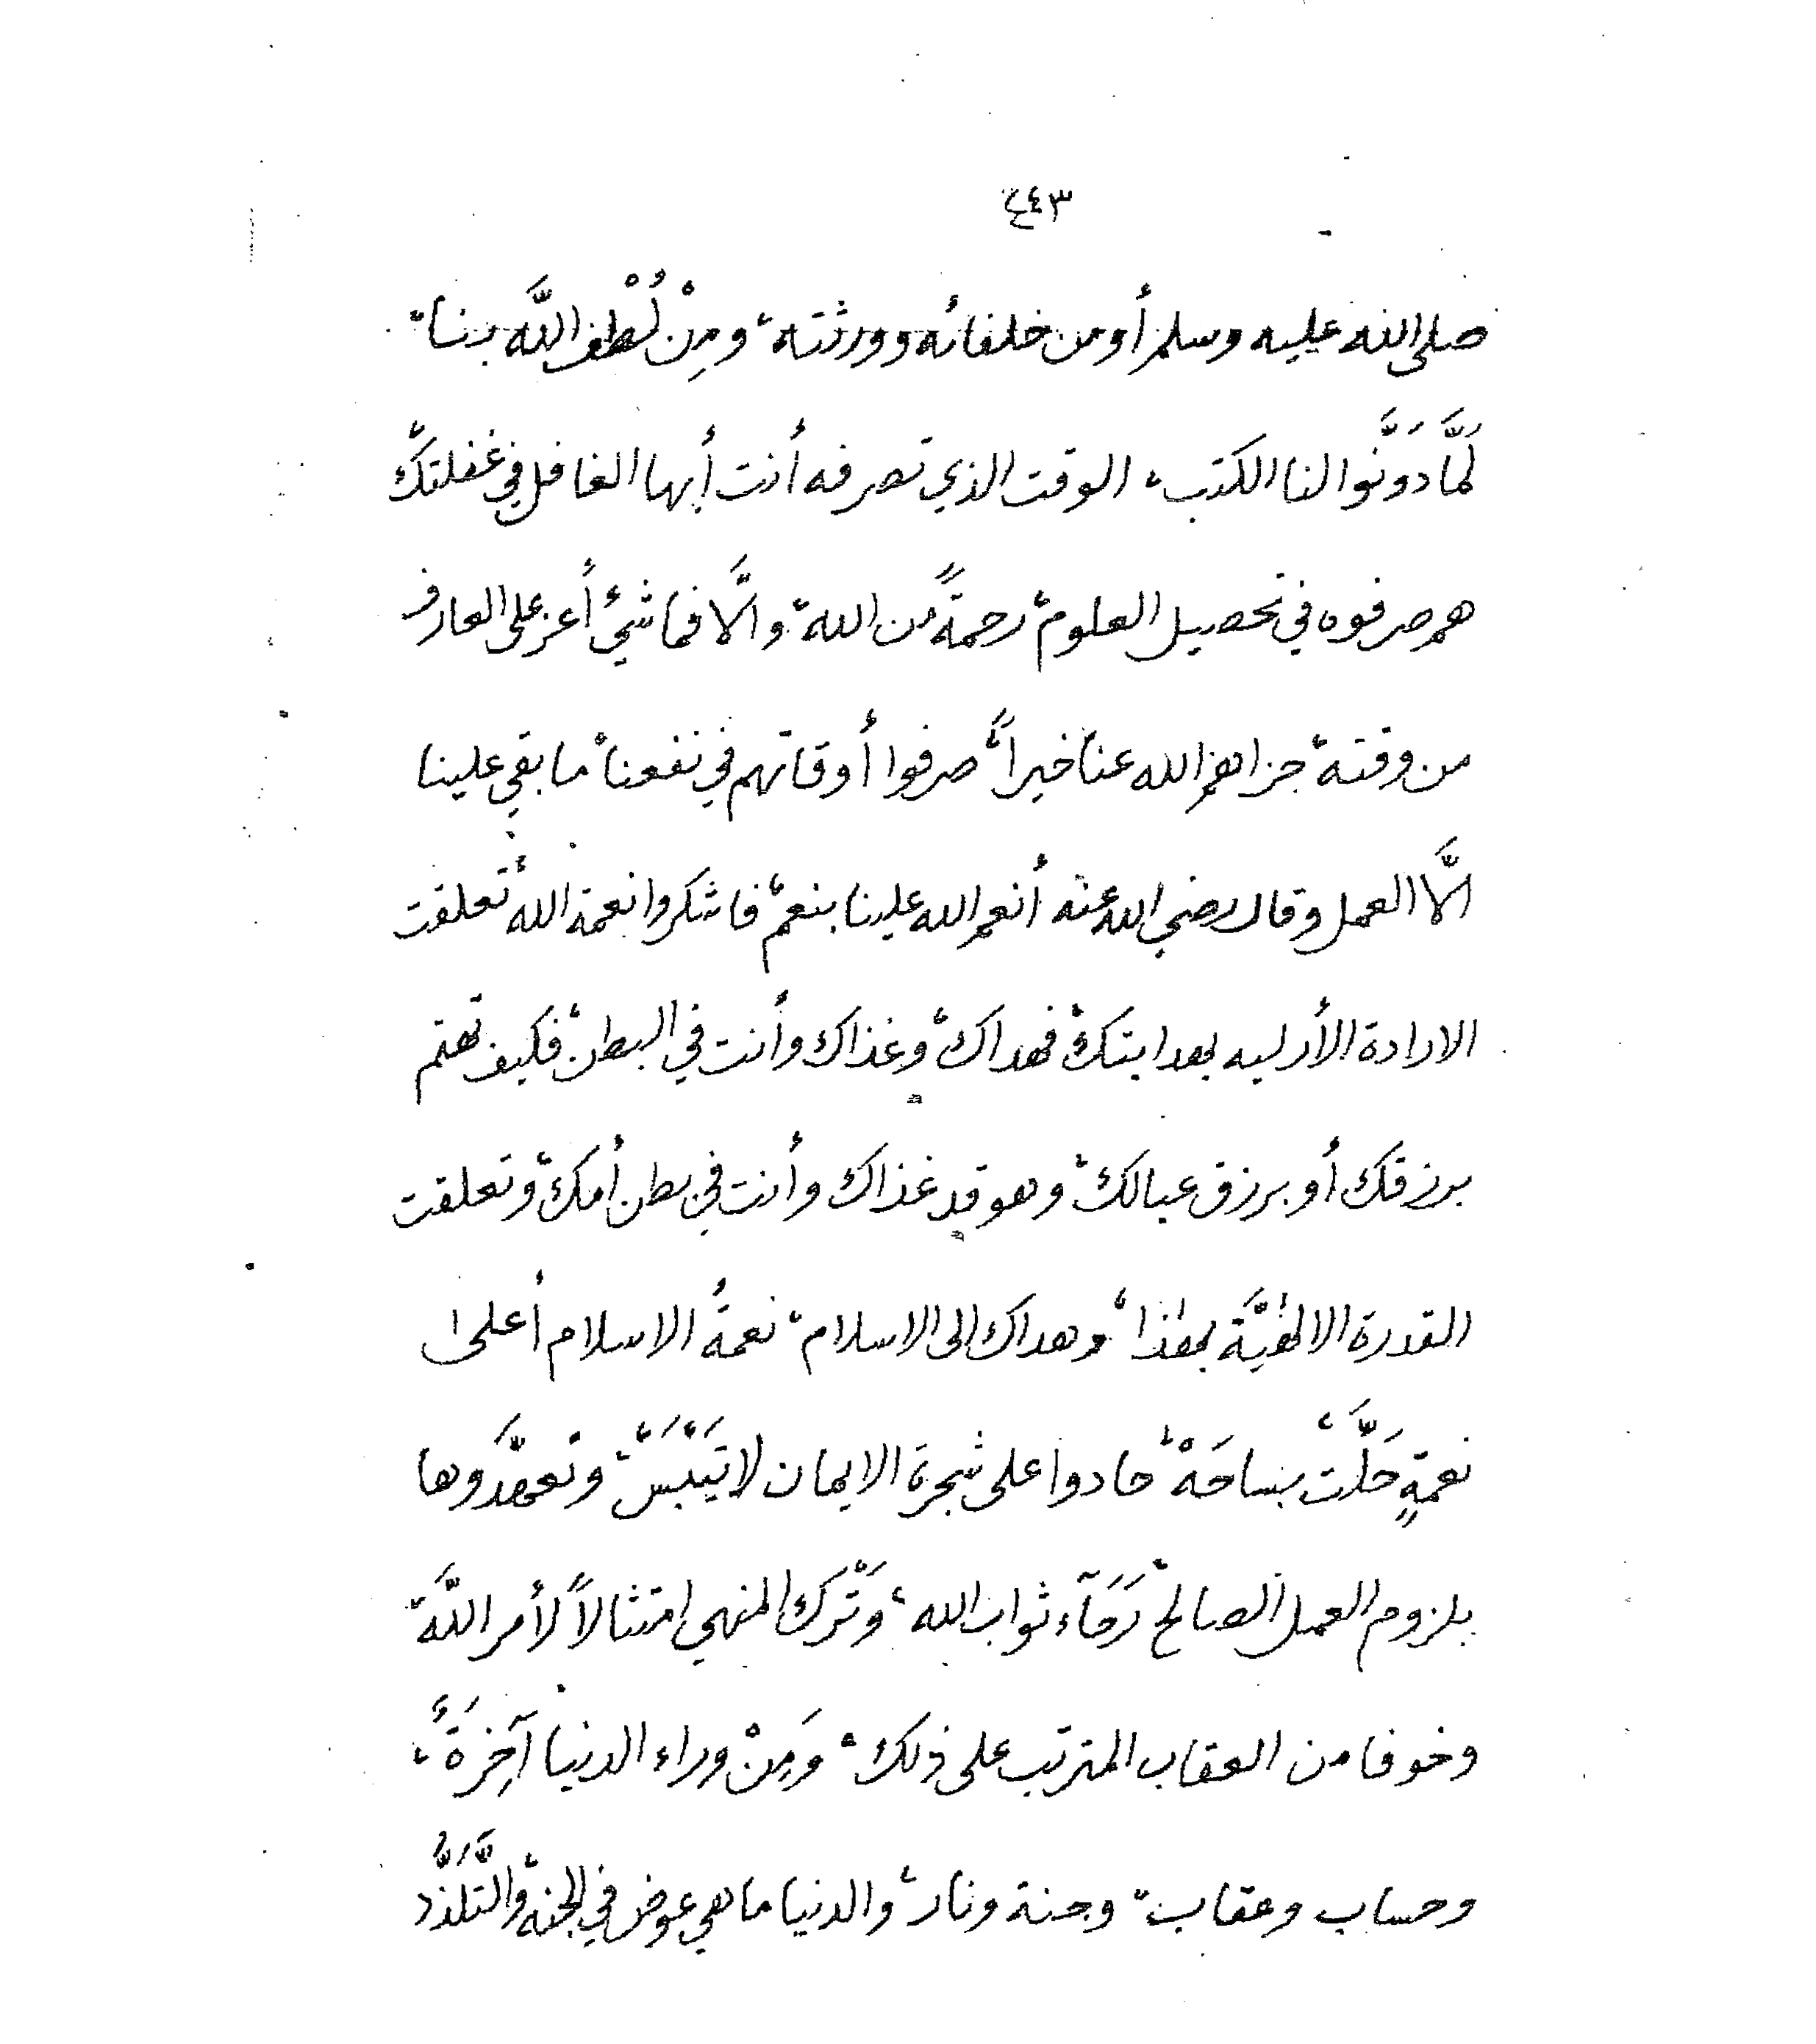 ٤٤٣
صلى الله عليه وسلم أو من خلفائه وورثته، ومِنْ لُطْفِ اللَّه بنا،
لَمَّا دَوَّنُوا لنا الكتب، الوقت الذي تصرفه أنت أيها الغافل في غفلتك،
هم صرفوه في تحصيل العلوم، رحمةً من الله، والَّا فما شيءٌ أعز على العارف
من وقته، جزاهم الله عنا خيراً، صرفوا أوقاتهم في نفعنا، ما بقي علينا
الَّا العمل وقال رضي الله عنه أنعم الله علينا بنعم، فاشكروا نعمة الله، تعلقت
الارادة الأزليه بهدايتك، فهداك، وغذاك وأنت في البطن، فكيف تهتم
برزقك أو برزق عيالك، وهو قد غذاك وأنت في بطن أمك، وتعلقت
القدرة الالهيَّة بهذا، وهداك الى الاسلام، نعمةُ الاسلام أعلى
نعمةٍ حَلَّتْ بساحَهْ، حادوا على شجرة الايمان لا تَيْبَسْ، وتعهَّدُوها
بلزوم العمل الصالح، رَجَآء ثواب الله، وَتَرْك المنهي امتثالاً لأمر اللَّه،
وخوفا من العقاب المترتب على ذلك، وَمِنْ وراء الدنيا آخِرَةٌ،
وحساب وعقاب، وجنة ونار، والدنيا ما هي عوض في الجنه، والتَّلَذُّذ